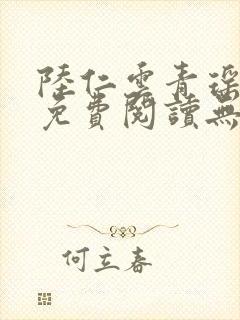 陸仁雲青瑶
免費閱讀無
何立春